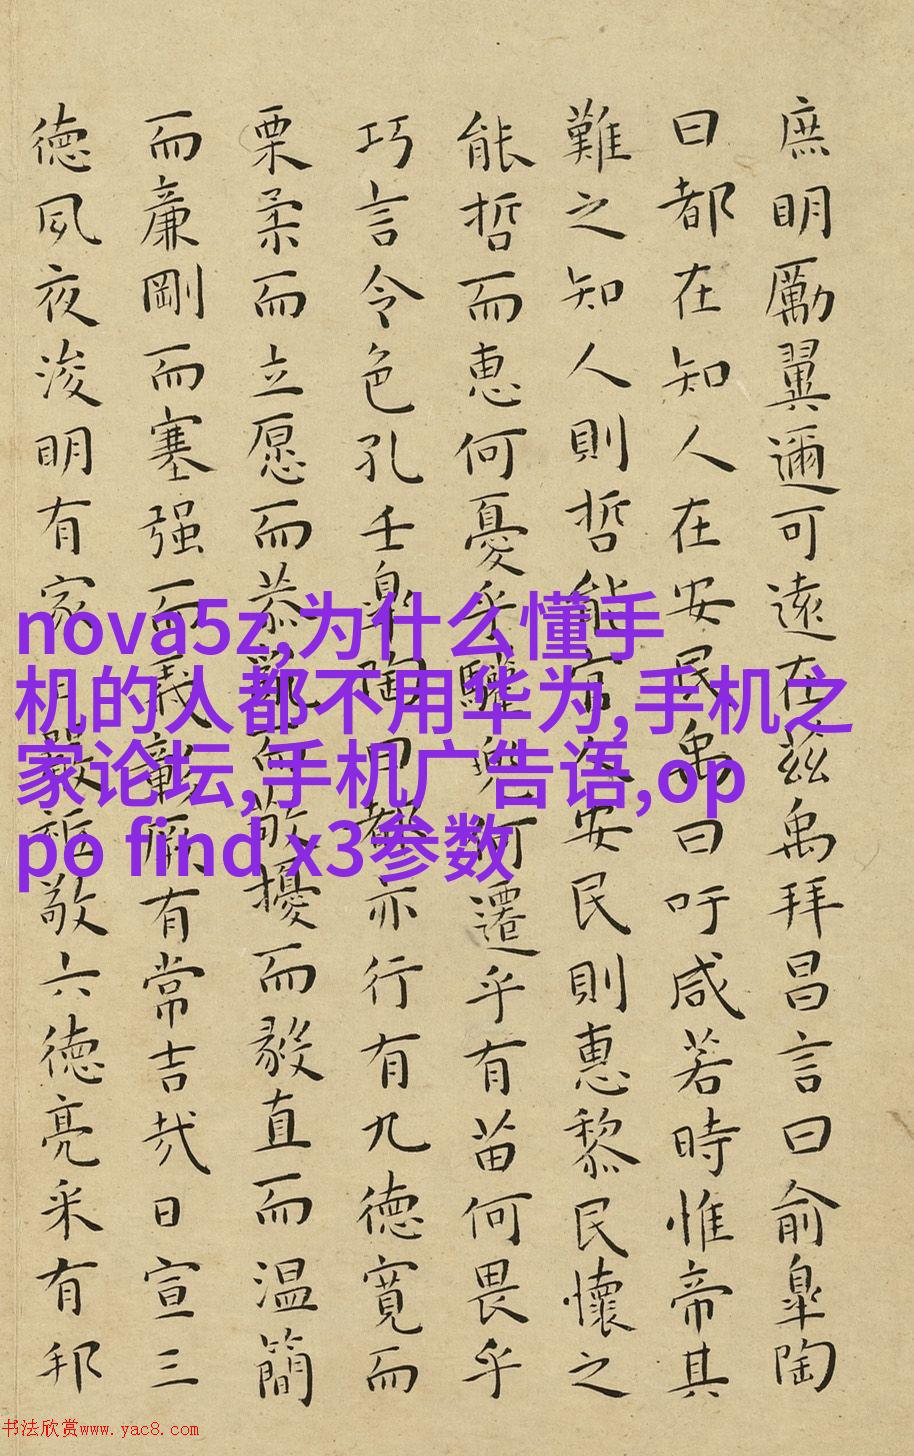 庶明勵翼邇可遠在茲禹拜昌言曰俞臯陶
曰都在知人在安民禹曰吁咸若時惟帝其
難之知人則哲能官人安民則惠黎民懷之
能哲而惠何憂乎驩兜何遷乎有苗何畏乎
巧言令色孔壬臯陶曰都亦行有九德寬而
栗柔而立愿而恭亂而敬擾而毅直而温簡
而廉剛而塞强而義彰厥有常吉哉日宣三
德夙夜浚明有家日嚴祗敬六德亮采有邦
nova5z,为什么懂手
机的人都不用华为,手机之
家论坛,手机广告语,op
po find x3参数
书法欣赏www.yac8.com